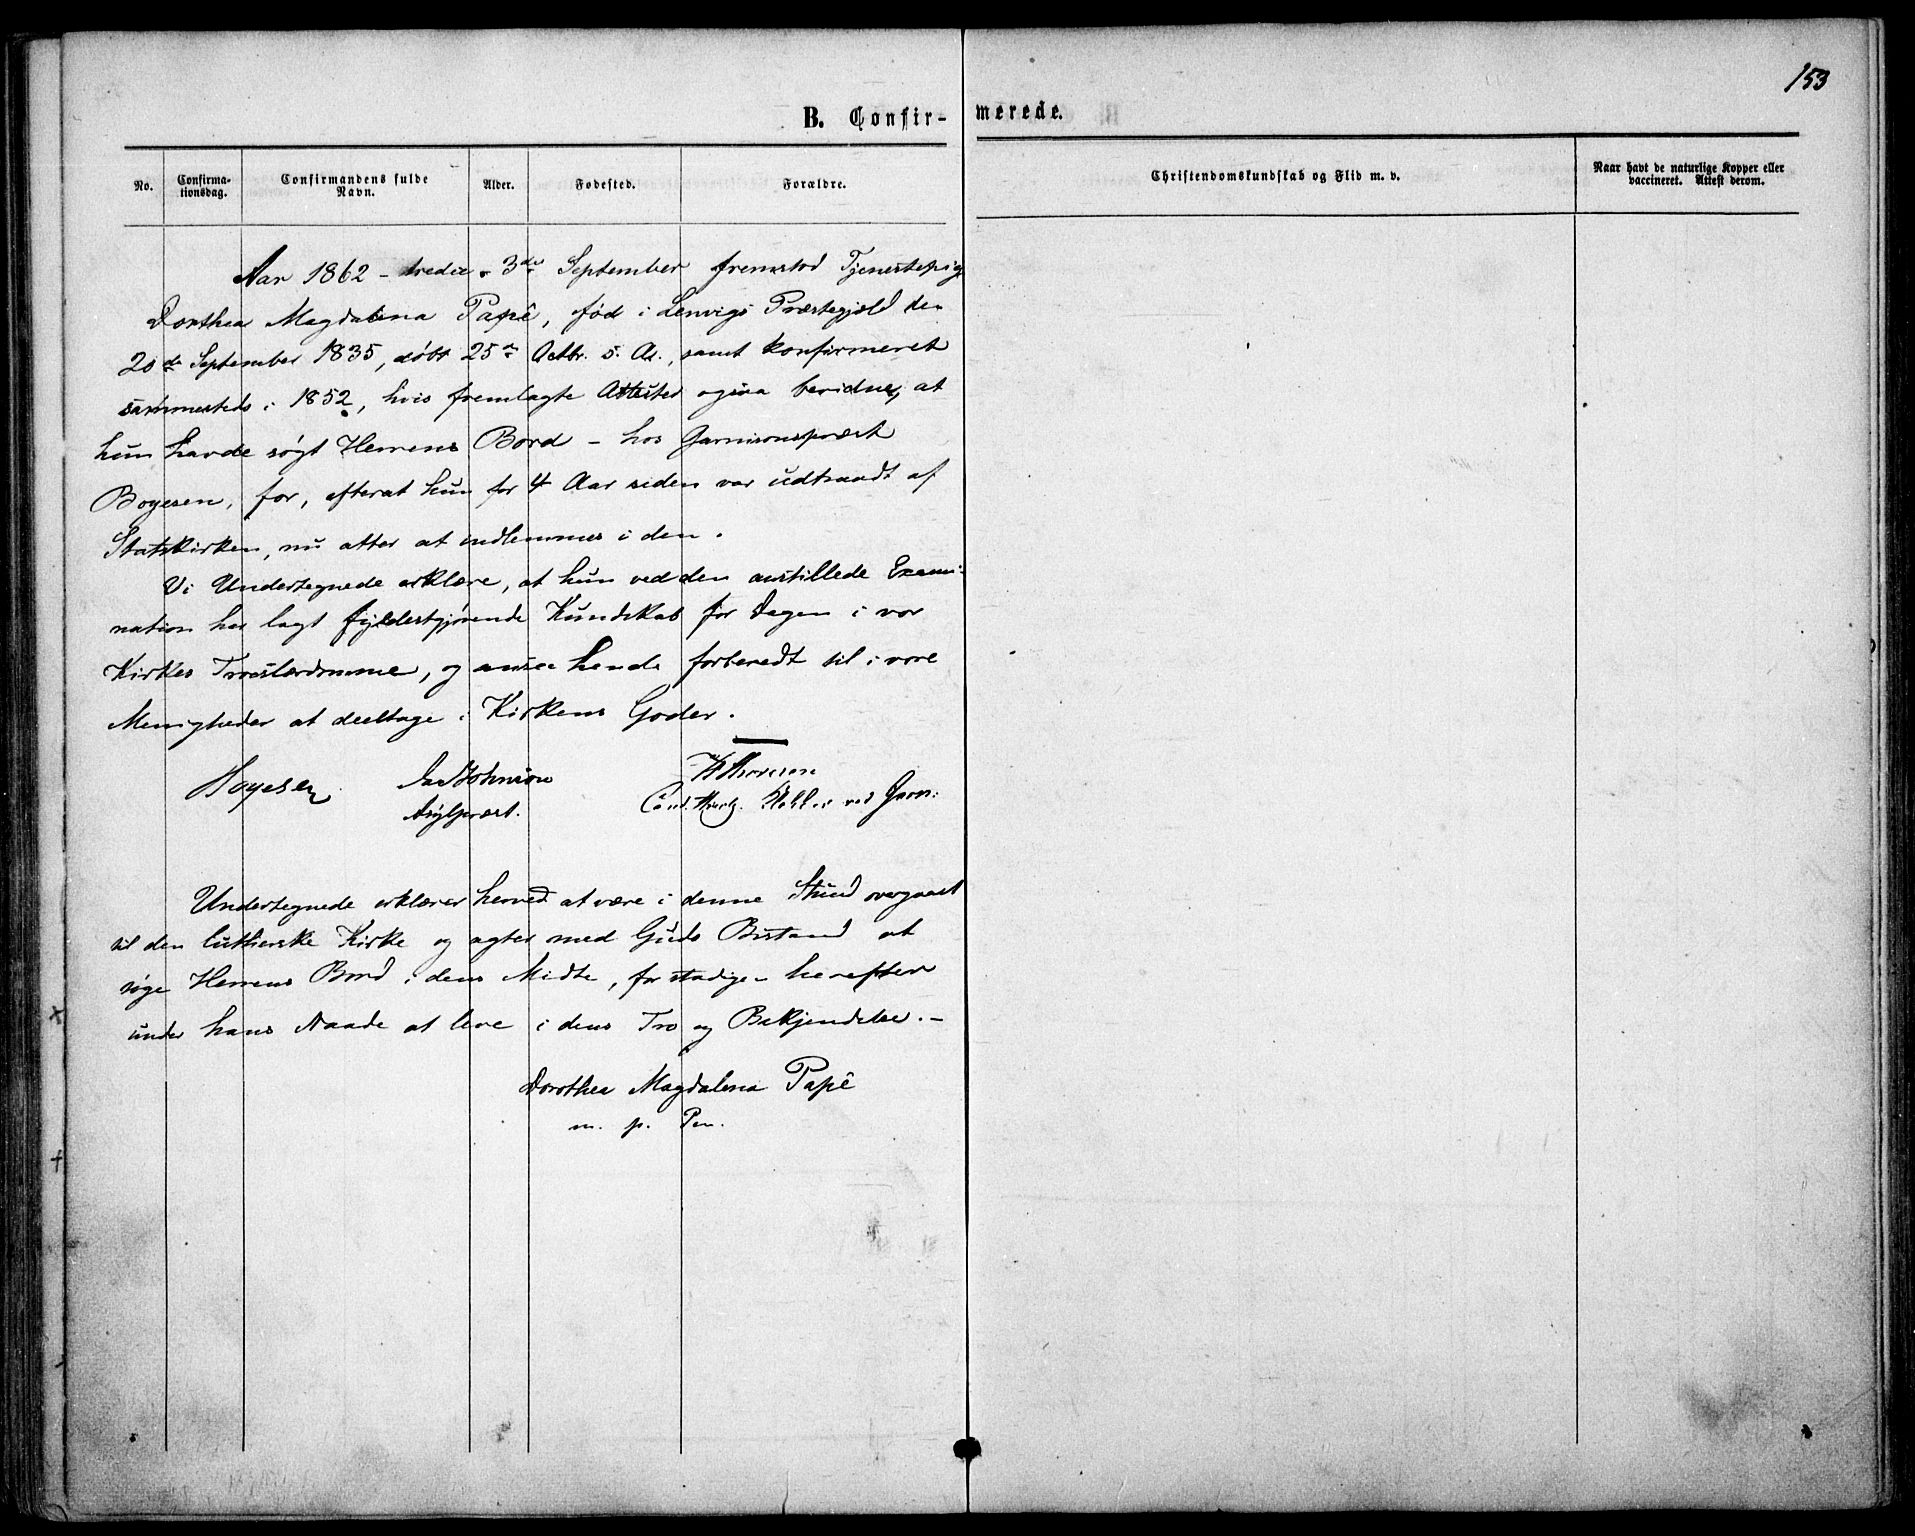 153
B. Confir-
merede.
No.
Confirma-
tionsdag.
Confirmandens fulde
Navn.
Alder.
Fødested.
Forældre.
Christendomskundskab og Flid m. v.
Naar havt de naturlige Kopper eller
vaccineret. Attest derom.
Aar 1862 - tredie - 3die September fremstod Tjenestepige
Dorthea Magdalena Papê, fød i Lenvigs Præstegjæld den
20de September 1835, døbt 25de Octbr. s. A., samt konfirmeret
sammesteds i 1852, hvis fremlagte Attester ogsaa bevidne, at
hun havde søgt Herrens Bord - hos Garnisonspræst
Boyesen, for, efterat hun for 4 Aar siden var udtraadt af
Statskirken, nu atter at indlemmes i den.
Vi Undertegnede erklære, at hun ved den anstillede Exami-
nation har lagt fyldestgjørende Kundskab for Dagen i vor
Kirkes Troeslærdomme, og ansee hende forberedt til i vore
Menigheder at deeltage i Kirkens Goder.
Boyesen
Johnson
Asylpræst.
Thoresen
Cand. Theol. ved Garn:
Undertegnede erklærer herved at være i denne Stund overgaaet
til den lutherske Kirke og agter med Guds Bistand at
søge Herrens Bord i dens Midte, for stadigen herefter
under hans Naade at leve i dens Tro og Bekjendelse. -
Dorothea Magdalena Papê
m. p. Pen.